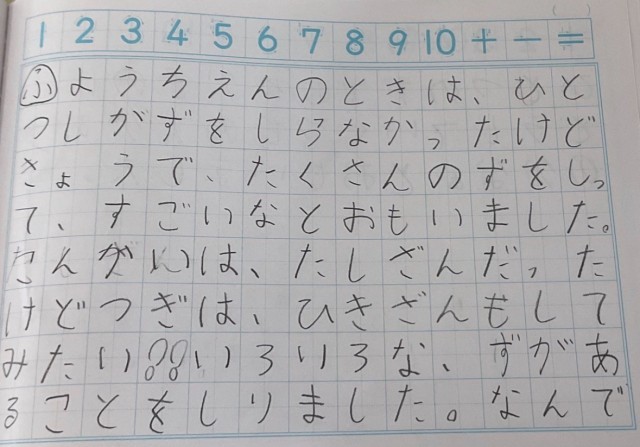 1 2 3 4 5 6 7 8 9 10 + - =
ふようちえんのときは、ひと
つしがずをしらなかったけど
きょうで、たくさんのずをしっ
て、すごいなとおもいました。
こんがいは、たしざんだった
けどつぎは、ひきざんもして
みたい！！いろいろな、ずがあ
ることをしりました。なんで